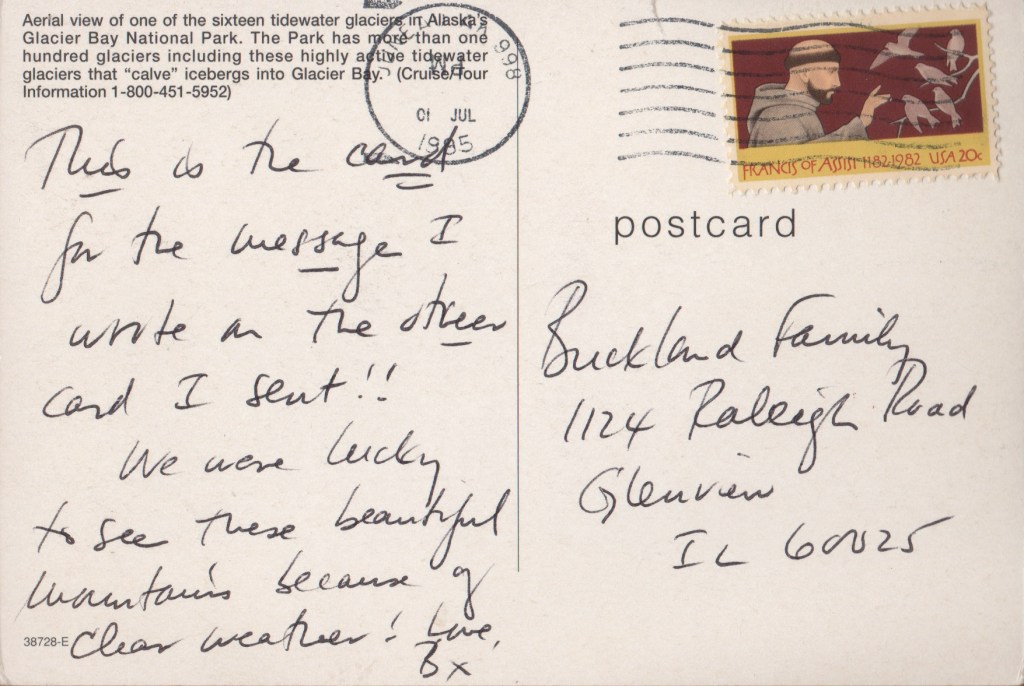 Aerial view of one of the sixteen tidewater glaciers in Alaska's
Glacier Bay National Park. The Park has more than one
hundred glaciers including these highly active tidewater
glaciers that “calve” icebergs into Glacier Bay. (Cruise/Tour
Information 1-800-451-5952)
998
AM
01 JUL
1985
FRANCIS OF ASSISI 1182·1982 USA 20c
postcard
This is the card
for the message I
wrote on the other
card I sent!!
We were lucky
to see these beautiful
mountains because of
clear weather! Love,
Bx
38728-E
Buckland Family
1124 Raleigh Road
Glenview
IL 60025